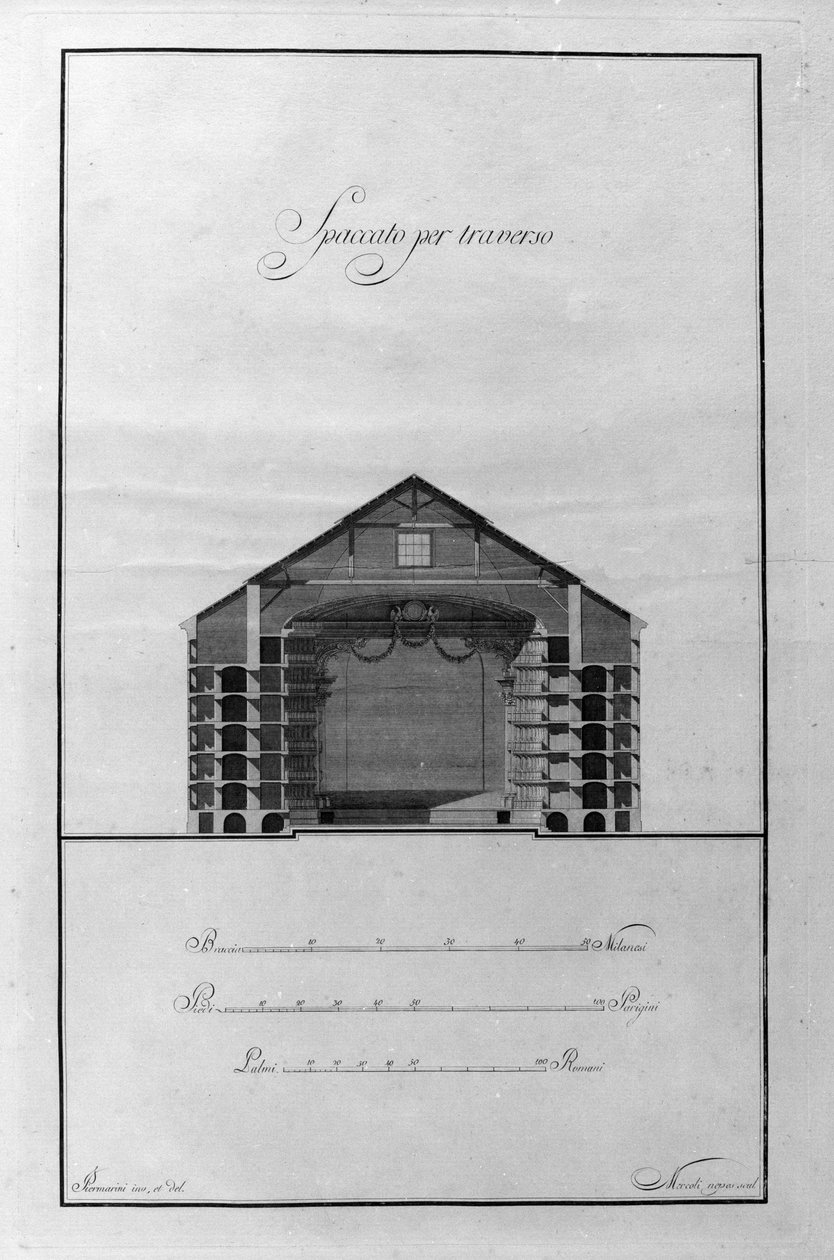 Spaccato per traverso
Braccia 10 20 30 40 50 Milanesi
Piedi 10 20 30 40 50 100 Parigini
Palmi. 10 20 30 40 50 100 Romani
Piermarini inv. et del.
Mercoli nepos scul.